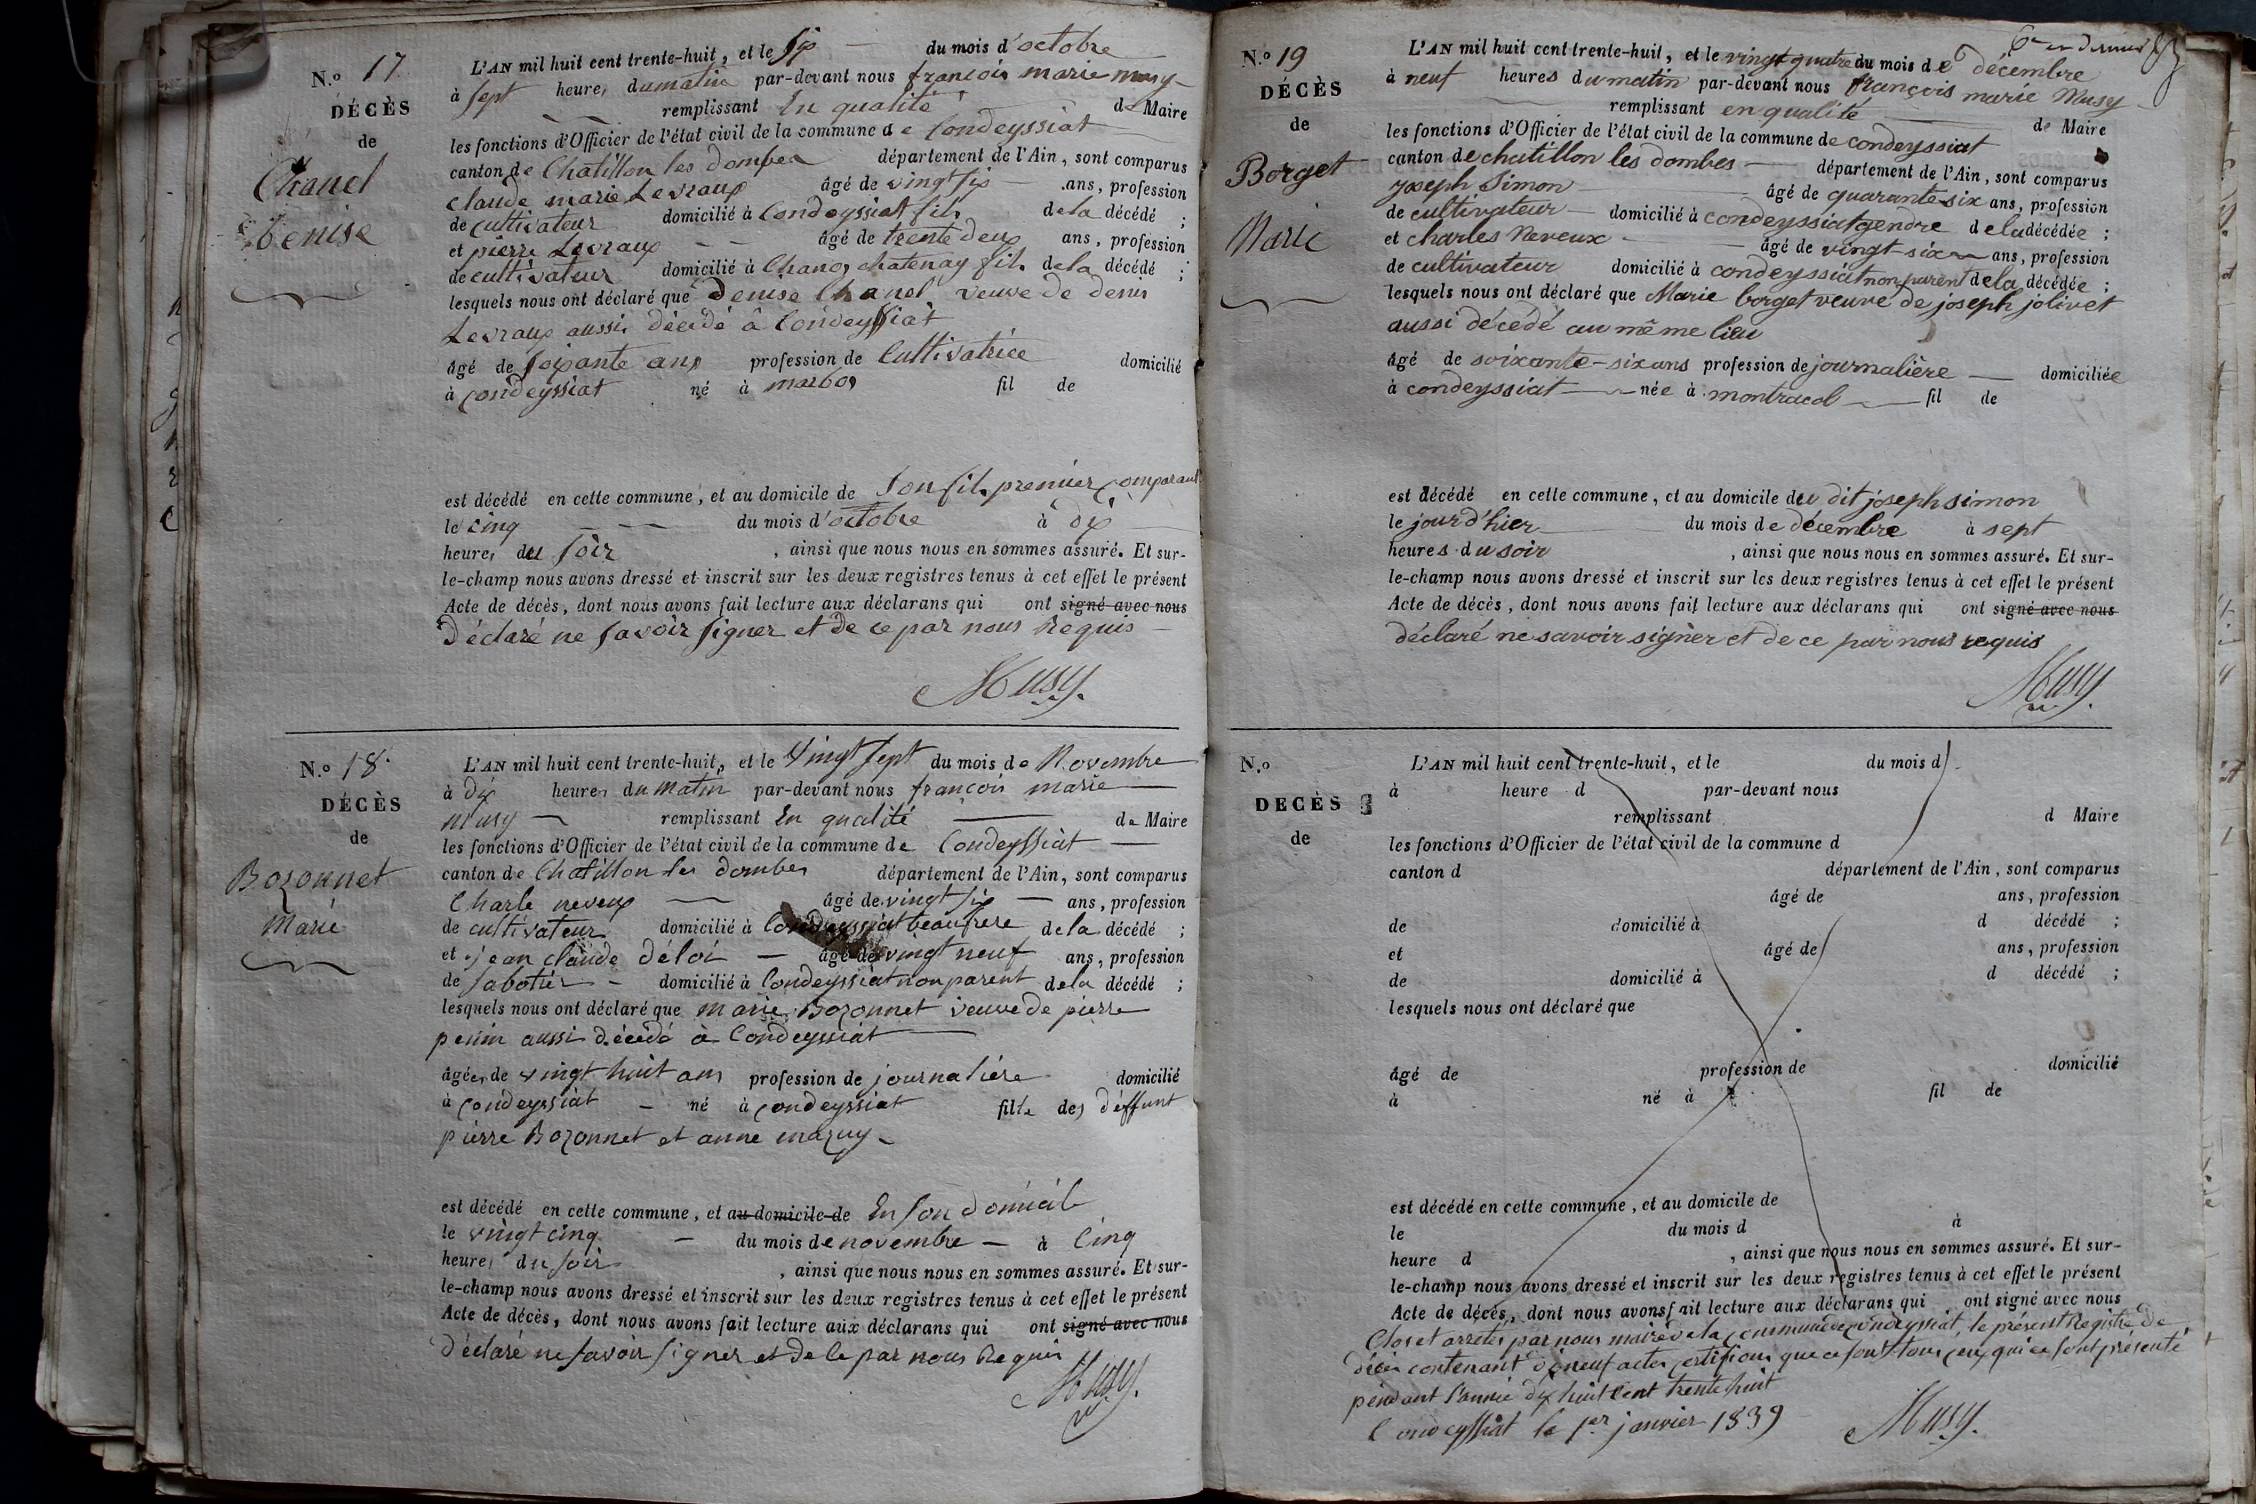 N.o 17
DÉCÈS
de
Chanel
Denise
L'AN mil huit cent trente-huit, et le six du mois d'octobre
à sept heures du matin par-devant nous francois marie musy
remplissant En qualité de Maire
les fonctions d'Officier de l'état civil de la commune de Condeyssiat
canton de Chatillon les dombes département de l'Ain, sont comparus
claude marie Levraux âgé de vingt six ans, profession
de cultivateur domicilié à Condeyssiat fils de la décédé ;
et pierre Levraux âgé de trente deux ans, profession
de cultivateur domicilié à Chanoz chatenay fils de la décédé ;
lesquels nous ont déclaré que Denise Chanel veuve de denis
Levraux aussi décédé à Condeyssiat
âgé de soixante ans profession de Cultivatrice domicilié
à Condeyssiat né à marboz fil de
est décédé en cette commune, et au domicile de son fils premier Comparant
le cinq du mois d'octobre à dix
heures du soir, ainsi que nous nous en sommes assuré. Et sur-
le-champ nous avons dressé et inscrit sur les deux registres tenus à cet effet le présent
Acte de décès, dont nous avons fait lecture aux déclarans qui ont signé avec nous
Déclaré ne savoir signer et de ce par nous Requis
Musy.
N.o 18.
DÉCÈS
de
Bozonnet
Marie
L'AN mil huit cent trente-huit, et le Vingt sept du mois de Novembre
à dix heures du matin par-devant nous françois marie
musy remplissant En qualité de Maire
les fonctions d'Officier de l'état civil de la commune de Condeyssiat
canton de Chatillon les dombes département de l'Ain, sont comparus
Charle neveux âgé de vingt six ans, profession
de cultivateur domicilié à Condeyssiat beaufrere de la décédé ;
et jean claude déloi âgé de vingt neuf ans, profession
de sabotier domicilié à Condeyssiat non parent de la décédé ;
lesquels nous ont déclaré que marie Bozonnet veuve de pierre
penin aussi décédé à Condeyssiat
âgée de vingt huit ans profession de journalière domicilié
à Condeyssiat né à Condeyssiat fille des déffunt
pierre Bozonnet et anne mazuy
est décédé en cette commune, et au domicile de En son domicile
le vingt cinq du mois de novembre à Cinq
heures du soir, ainsi que nous nous en sommes assuré. Et sur-
le-champ nous avons dressé et inscrit sur les deux registres tenus à cet effet le présent
Acte de décès, dont nous avons fait lecture aux déclarans qui ont signé avec nous
Déclaré ne savoir signer et de ce par nous Requis
Musy.
6e et dernier
N.o 19
DÉCÈS
de
Borget
Marie
L'AN mil huit cent trente-huit, et le vingt quatre du mois de décembre
à neuf heures du matin par-devant nous françois marie Musy
remplissant en qualité de Maire
les fonctions d'Officier de l'état civil de la commune de condeyssiat
canton de chatillon les dombes département de l'Ain, sont comparus
joseph Simon âgé de quarante-six ans, profession
de cultivateur domicilié à condeyssiat gendre de la décédée ;
et charles Neveux âgé de vingt-six ans, profession
de cultivateur domicilié à condeyssiat non parent de la décédée ;
lesquels nous ont déclaré que Marie borget veuve de joseph jolivet
aussi décedé au même lieu
âgé de soixante-six ans profession de journalière domiciliée
à condeyssiat née à montracol fil de
est décédé en cette commune, et au domicile du dit joseph simon
le jour d'hier du mois de décembre à sept
heures du soir, ainsi que nous nous en sommes assuré. Et sur-
le-champ nous avons dressé et inscrit sur les deux registres tenus à cet effet le présent
Acte de décès, dont nous avons fait lecture aux déclarans qui ont signé avec nous
déclaré ne savoir signer et de ce par nous requis
Musy.
N.o
DECÈS
de
L'AN mil huit cent trente-huit, et le du mois d
à heure d par-devant nous
remplissant d Maire
les fonctions d'Officier de l'état civil de la commune d
canton d département de l'Ain, sont comparus
âgé de ans, profession
de domicilié à d décédé ;
et âgé de ans, profession
de domicilié à d décédé ;
lesquels nous ont déclaré que
âgé de profession de domicilié
à né à fil de
est décédé en cette commune, et au domicile de
le du mois d à
heure d , ainsi que nous nous en sommes assuré. Et sur-
le-champ nous avons dressé et inscrit sur les deux registres tenus à cet effet le présent
Acte de décès, dont nous avons fait lecture aux déclarans qui ont signé avec nous
Clos et arrêté par nous maire de la Commune de Condeyssiat, le présent Registre de
décès contenant dix neuf actes certifions que ce sont tous ceux qui se sont présenté
pendant l'année dix huit cent trente huit
Condeyssiat le 1er janvier 1839
Musy.